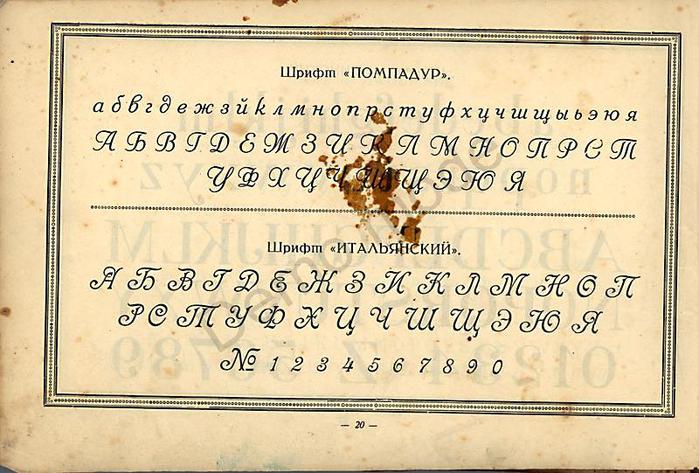 Шрифт «ПОМПАДУР».
а б в г д е ж з й к л м н о п р с т у ф х ц ч ш щ ы ь э ю я
А Б В Г Д Е Ж З И К Л М Н О П Р С Т
У Ф Х Ц Ч Ш Щ Э Ю Я
Шрифт «ИТАЛЬЯНСКИЙ».
А Б В Г Д Е Ж З И К Л М Н О П
Р С Т У Ф Х Ц Ч Ш Щ Э Ю Я
№ 1 2 3 4 5 6 7 8 9 0
— 20 —